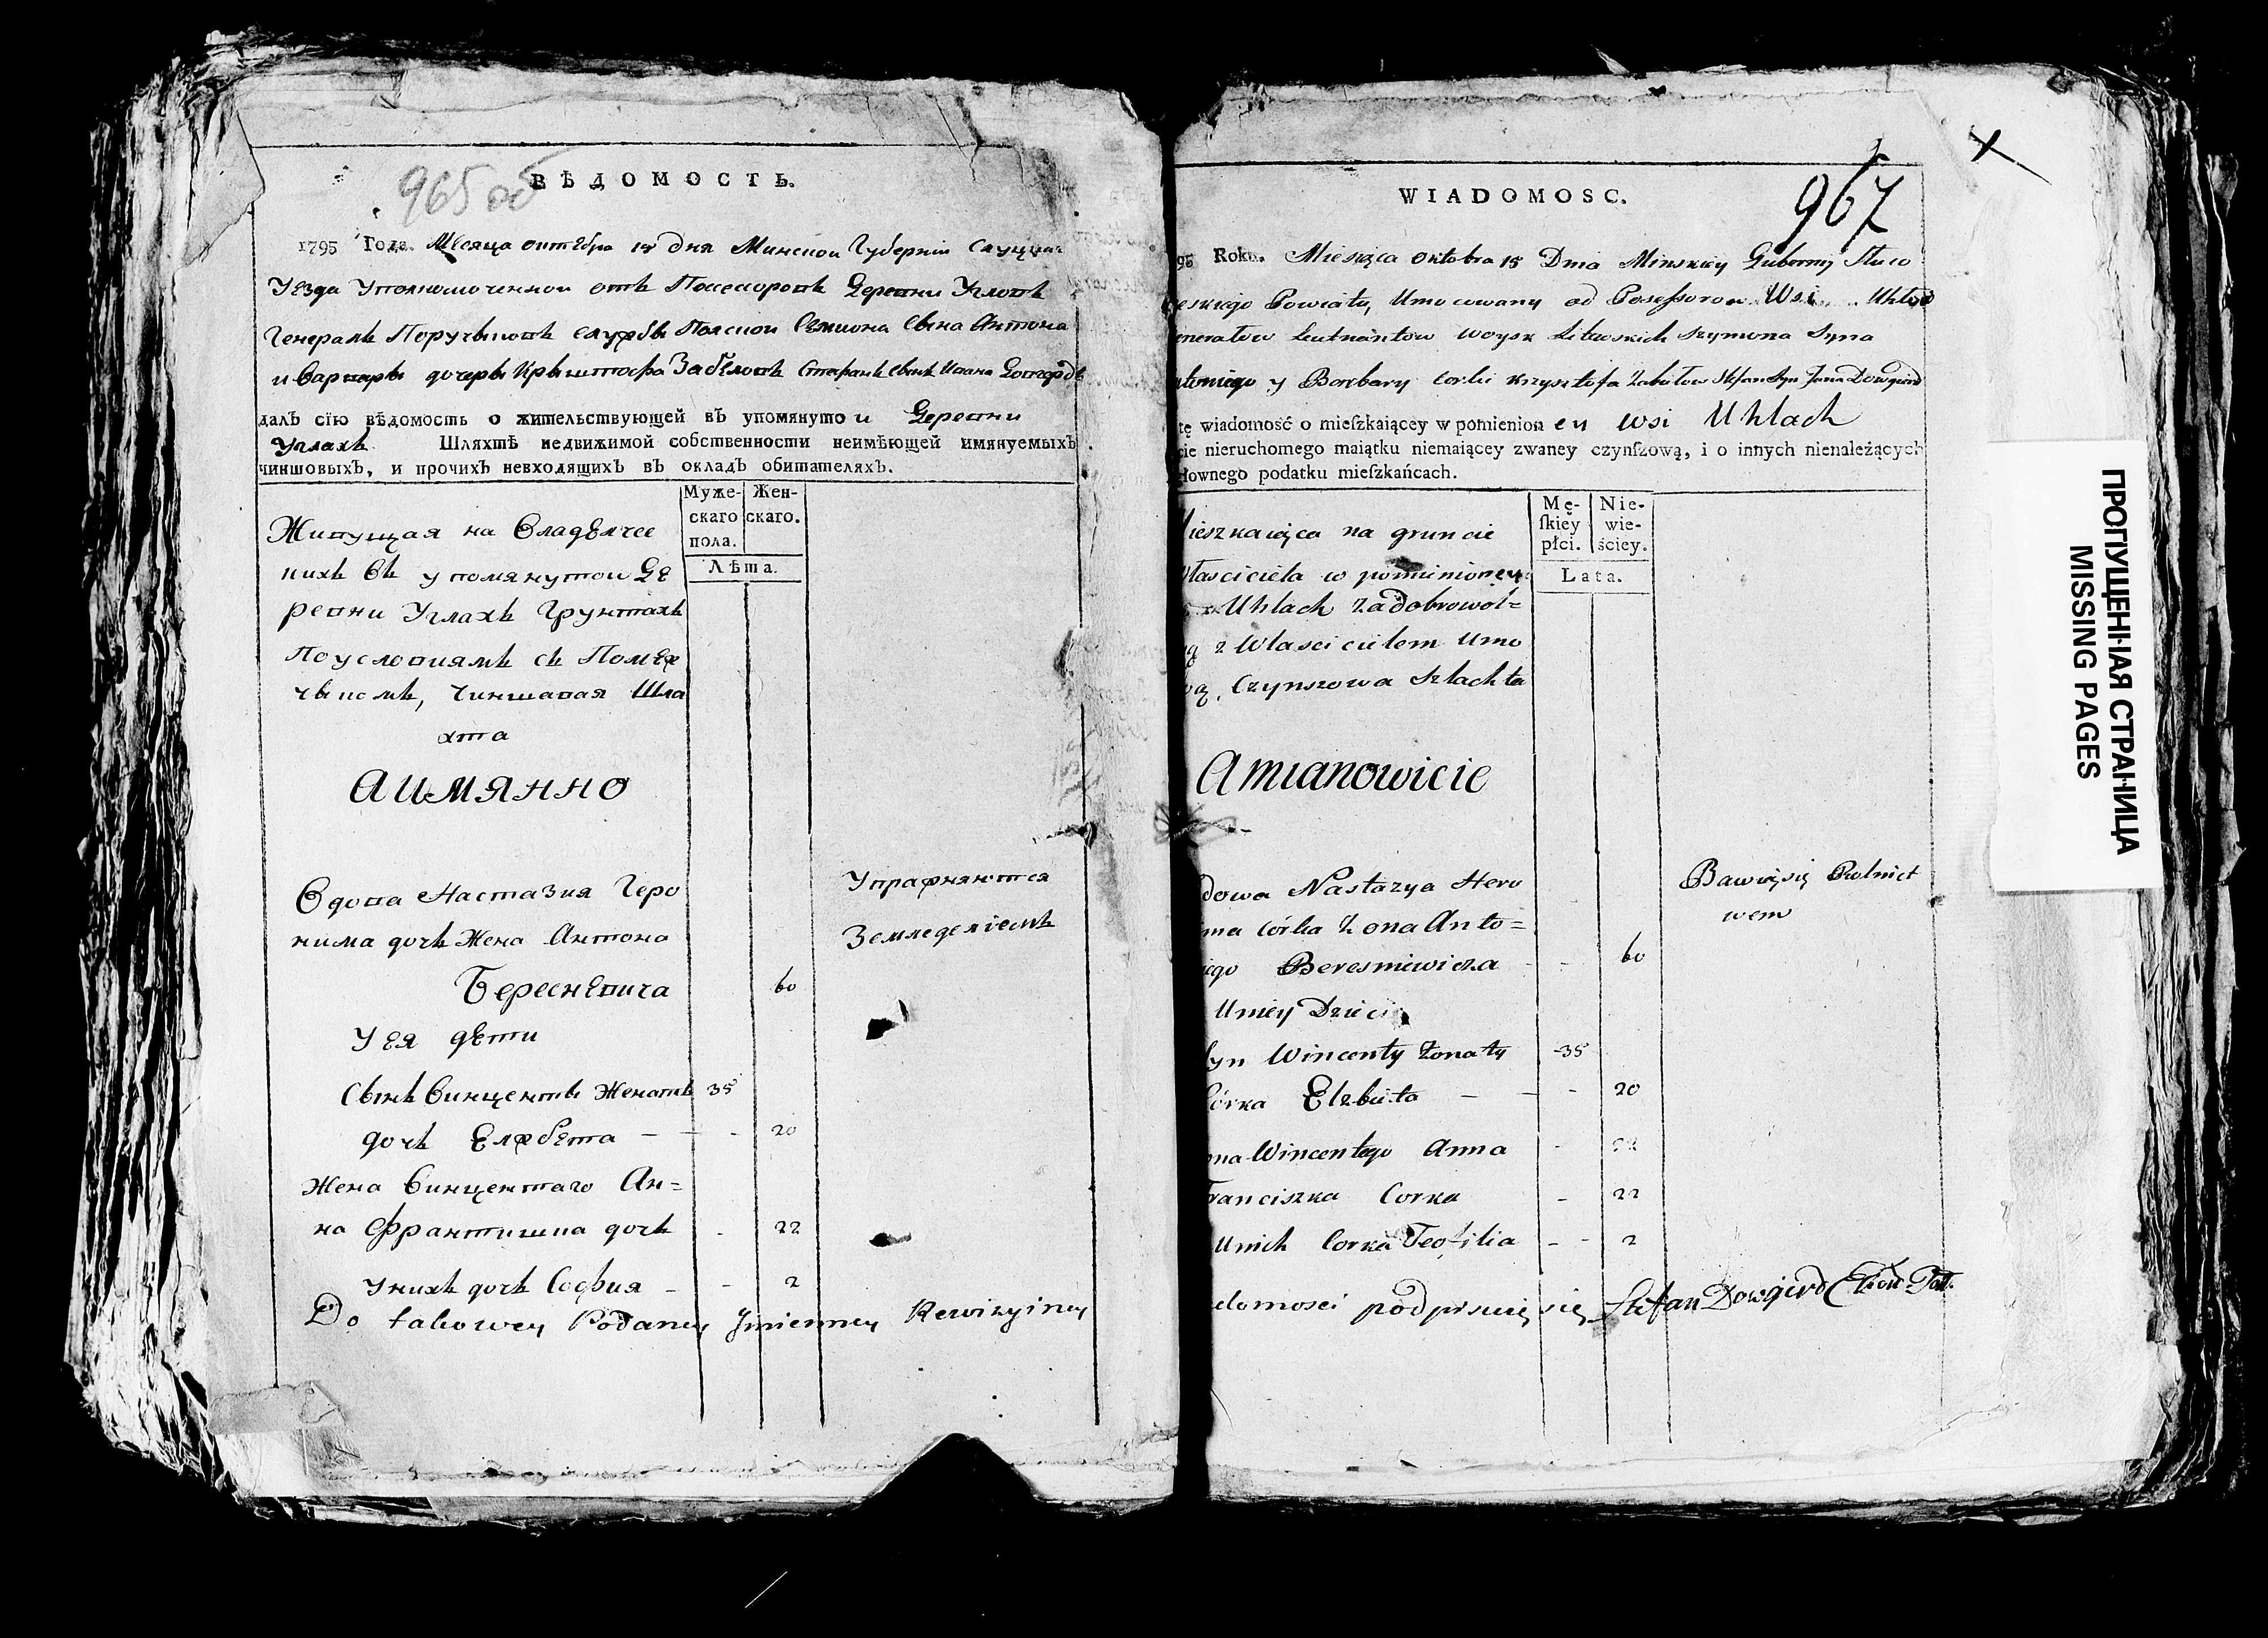 965 об
ВѢДОМОСТЬ.
1795 Года. Месяца октября 15 дня Минской Губернии Слуцкаго
Уезда Уполномоченной отъ Посесоровъ Деревни Угловъ
Генералъ Поручиковъ службы Полской Семиона сына Антона
и Варвары дочеры Крыштофа Забеловъ Стефанъ сынъ Ивана Довгирдъ
далъ сїю вѣдомость о жительствующей въ упомянутои Деревни
Углахъ Шляхтѣ недвижимой собственности неимѣющей имянуемыхъ
чиншовыхъ, и прочихъ невходящихъ въ окладъ обитателяхъ.
Муже-
скаго
пола.
Жен-
скаго.
Лѣта.
Живущая на Владелче
скихъ въ упомянутои Де
ревни Углахъ Грунтахъ
По условиямъ съ Поме
чыкомъ, Чиншовая Шла
хта
А ИМЯННО
Вдова Настазия Геро
нима дочъ Жена Антона
Бересневича 60
Упражняются
Земледелиемъ
У ея дети
Сынъ Винценты Женатъ 35
дочъ Елжбета — — - 20
Жена Винцентаго Ан=
на Франтишка дочъ - 22
У нихъ дочъ София - - 2
Do takowey Podaney Jmienney Rewizyiney
WIADOMOSC.
967
95 Roku. Miesząca Oktobra 15 Dnia Minskiey Gubernij Słuc
eskiego Powiatu, Umocowany od Posessorow Wsi Uhlow
eneratow Leutnantow Woysk Litewskich Szymona Syna
toniego y Barbary Corki Krzysztofa Zabełow Stefan Syn Jana Dowgird
tę wiadomość o mieſzkaiącey w pomienioney wsi Uhlach
cie nieruchomego maiątku niemaiącey zwaney czynſzową, i o innych nienależących
łownego podatku mieſzkańcach.
Mę-
ſkiey
płci.
Nie-
wie-
ściey.
Lata.
ieszkaiąca na gruncie
łasciciela w pomienioney
Uhlach za dobrowol=
ą z Włascicielem Umo
wą, Czynszowa Szlachta
A mianowicie
dowa Nastazya Hero
ma Córka Żona Anto=
iego Beresniewicza - - 60
Bawią się Rolnict
wem
U niey Dzieci
yn Wincenty Żonaty 35
órka Elzbieta — — - 20
ona Wincentego Anna -
ranciszka Corka - 22
U nich Corka Teofilia - - 2
domosci podpisuię się Stefan Dowgird
X
ПРОПУЩЕННАЯ СТРАНИЦА
MISSING PAGES